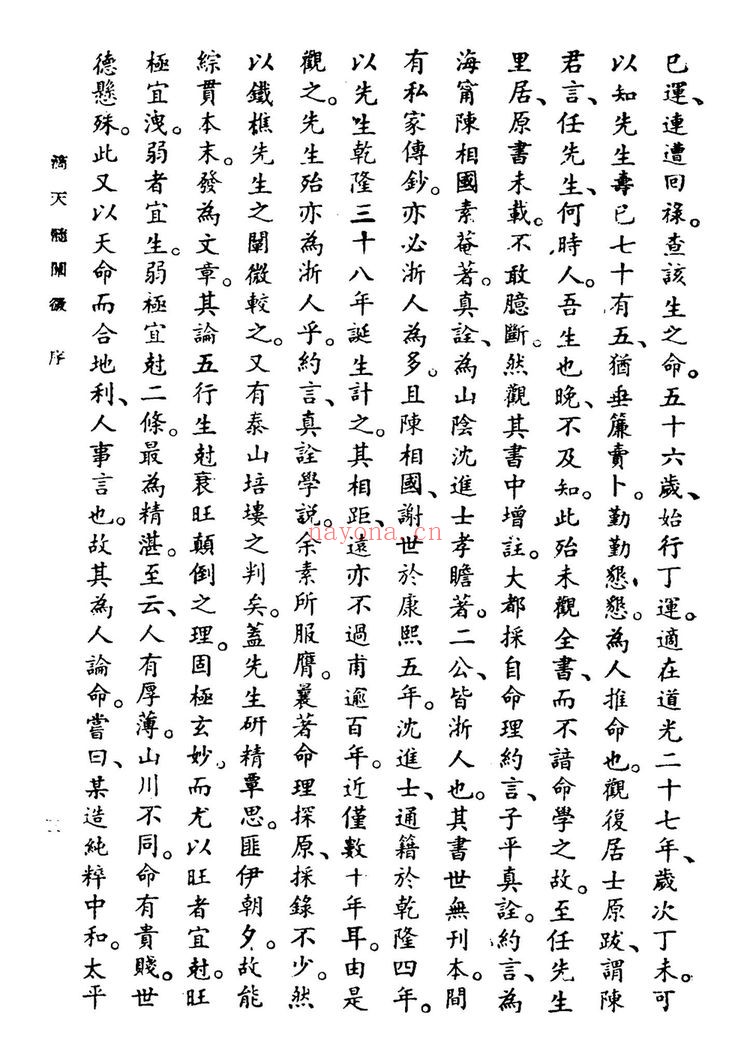 巳運、連遭回祿。查該生之命。五十六歲、始行丁運。適在道光二十七年、歲次丁未。可
以知先生壽已七十有五、猶垂簾賣卜。勤勤懇懇。為人推命也。觀復居士原跋、謂陳
君言、任先生、何時人。吾生也晚、不及知。此殆未觀全書、而不諳命學之故。至任先生
里居、原書未載。不敢臆斷。然觀其書中增註。大都採自命理約言、子平真詮。約言、為
海甯陳相國素菴著。真詮、為山陰沈進士孝瞻著。二公、皆浙人也。其書世無刊本。間
有私家傳鈔。亦必浙人為多。且陳相國、謝世於康熙五年。沈進士、通籍於乾隆四年。
以先生乾隆三十八年誕生計之。其相距、遠亦不過甫逾百年。近僅數十年耳。由是
觀之。先生殆亦為浙人乎。約言、真詮學說。余素所服膺。曩著命理探原、採錄不少。然
以鐵樵先生之闡微較之。又有泰山培塿之判矣。蓋先生研精覃思。匪伊朝夕。故能
綜貫本末。發為文章。其論五行生尅衰旺顛倒之理。固極玄妙。而尤以旺者宜尅。旺
極宜洩。弱者宜生。弱極宜尅二條。最為精湛。至云、人有厚薄。山川不同。命有貴賤。世
德懸殊。此又以天命而合地利、人事言也。故其為人論命。嘗曰、某造純粹中和。太平
滴天髓闡微 序
二
nayona.cn